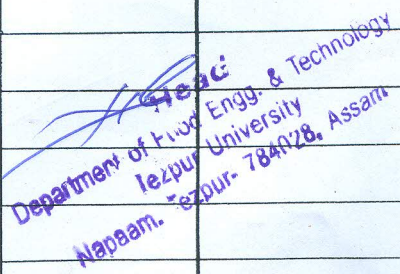 Head
Department of Food Engg. & Technology
Tezpur University
Napaam, Tezpur- 784028, Assam